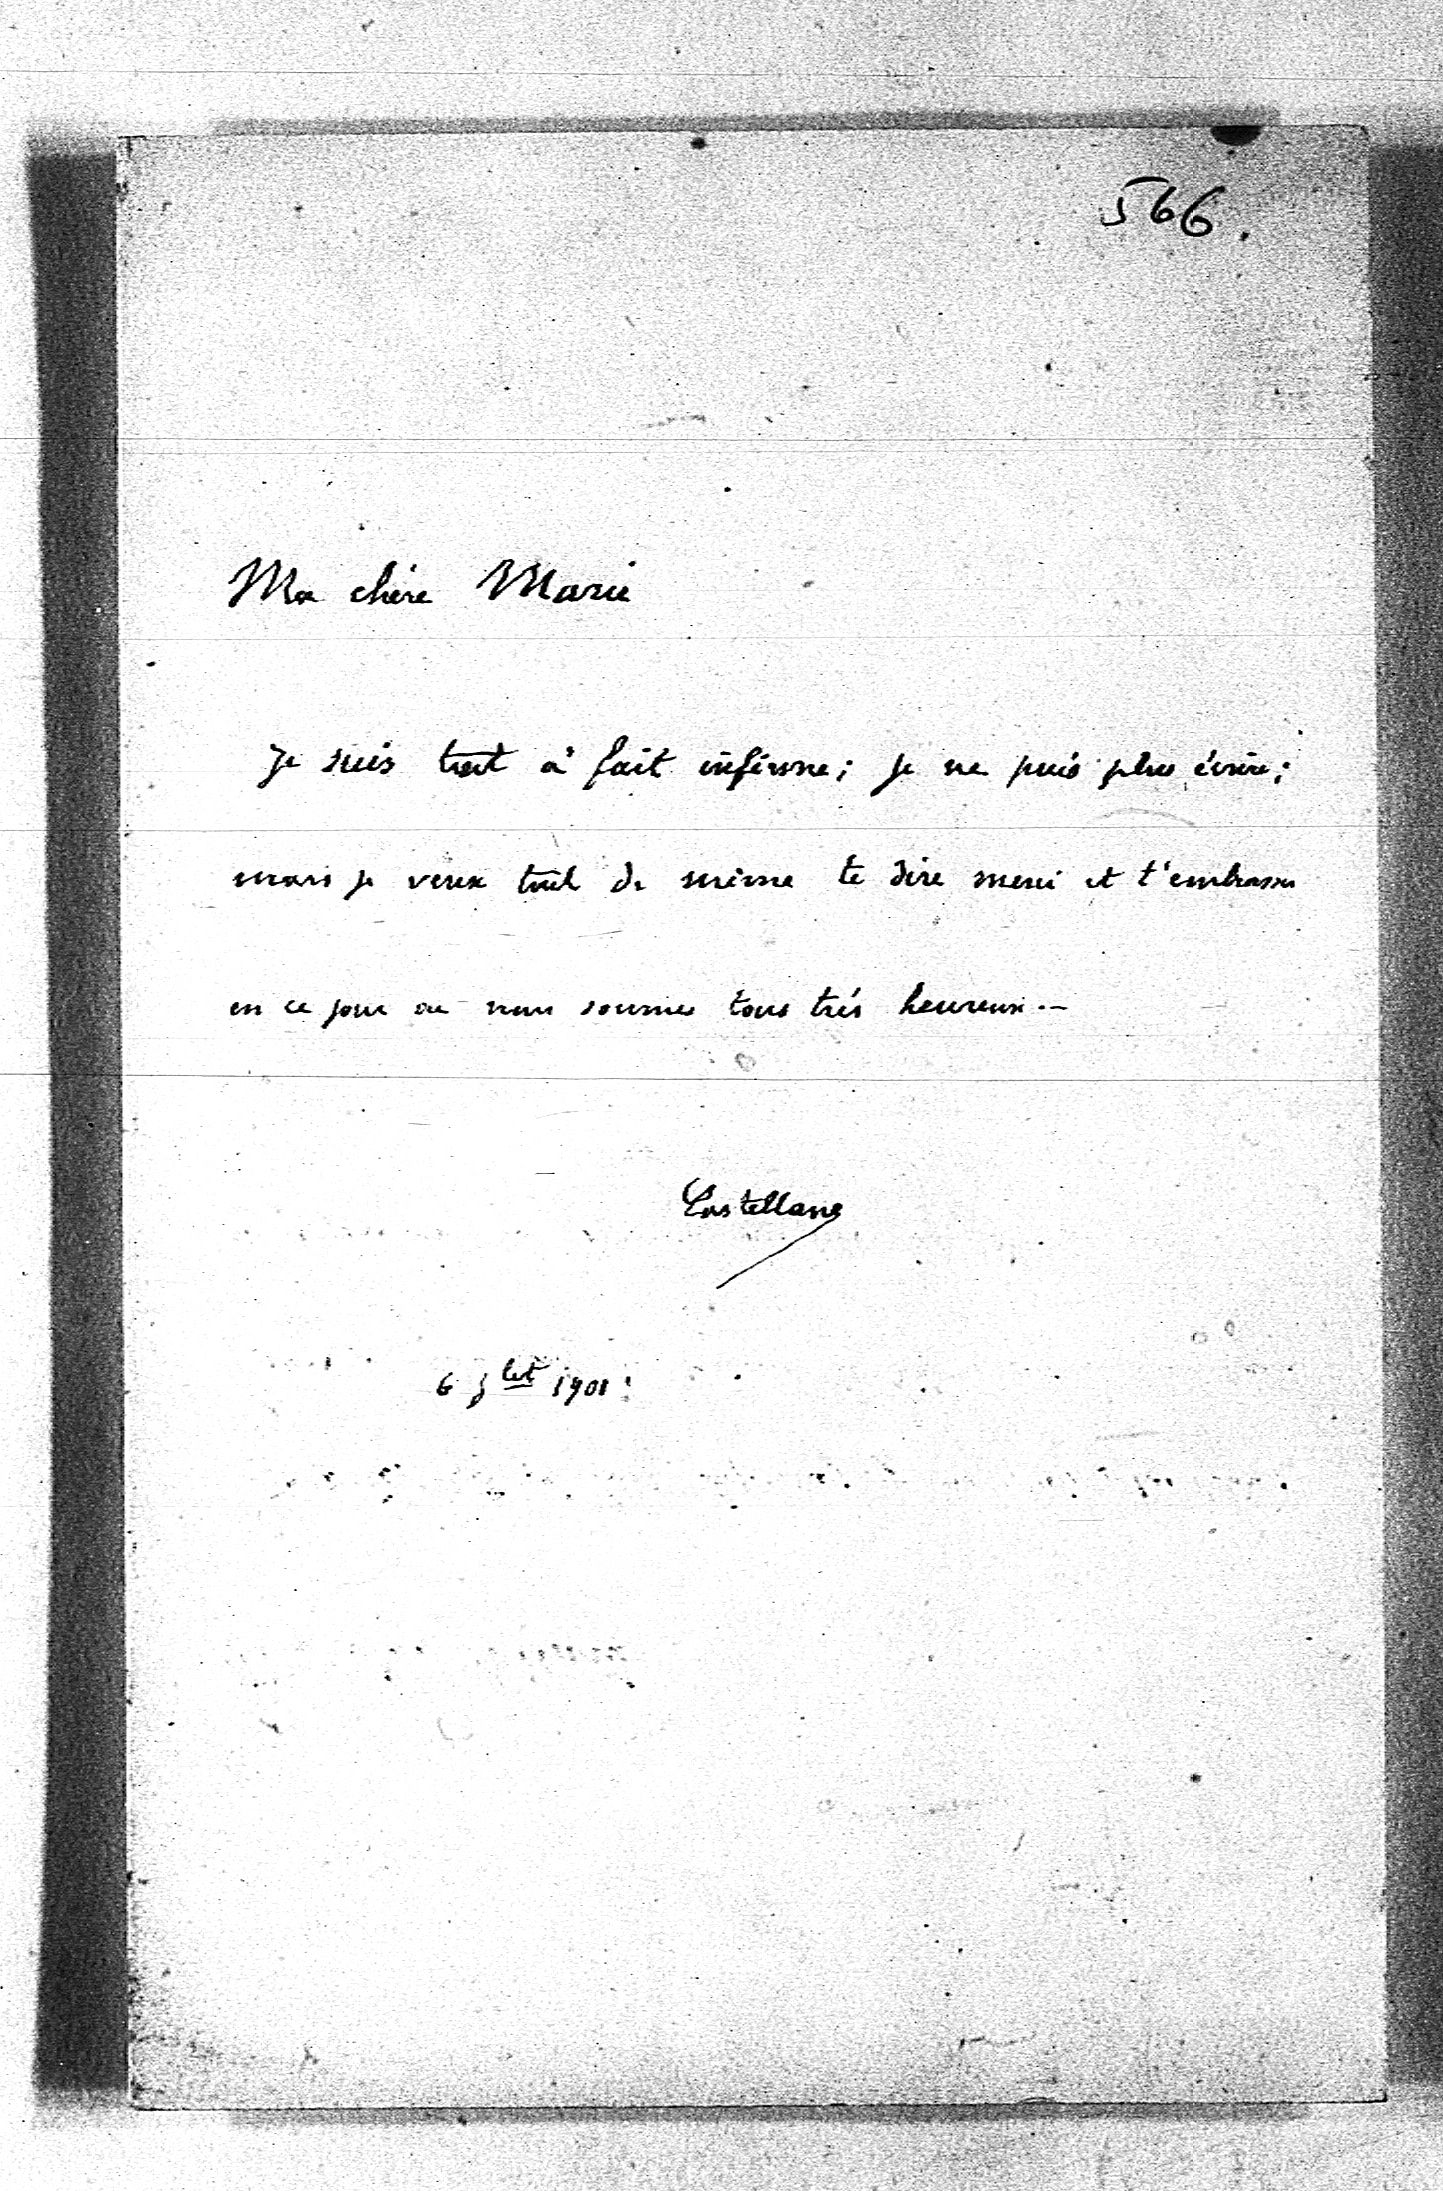 566.
Ma chère Marie
Je suis tout à fait infirme; je ne puis plus écrire;
mais je veux tout de même te dire merci et t'embrasser
en ce jour où nous sommes tous très heureux. —
Castellane
6 jlet 1901.